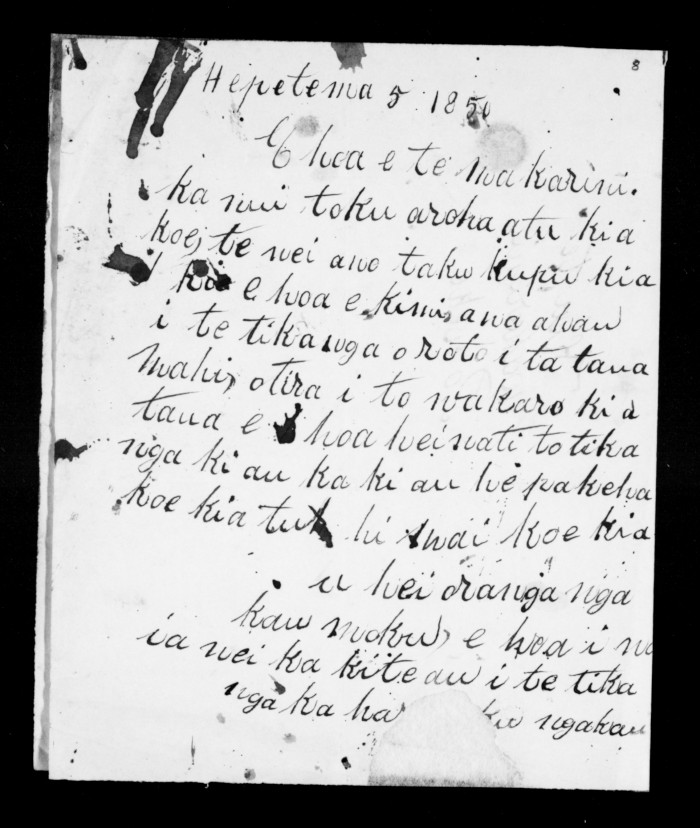 8
Hepetema 5 1850
E hoa e te makarini.
ka nui toku aroha atu kia
koe, te nei ano taku kupu kia
koe e hoa e kimi, ana ahau
i te tikanga o roto i ta taua
mahi, otira i to wakaro ki a
taua e hoa heinati to tika
nga ki au ka ki au he pakeha
koe kia tu hi mai koe kia
u hei oranga nga
kau moku, e hoa i
ia nei ka kite au i te tika
nga ka ha ku ngakau